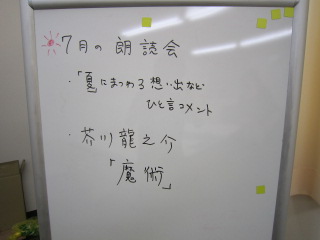 7月の朗読会
・「夏にまつわる想い出など
ひと言コメント
・芥川龍之介
「魔術」